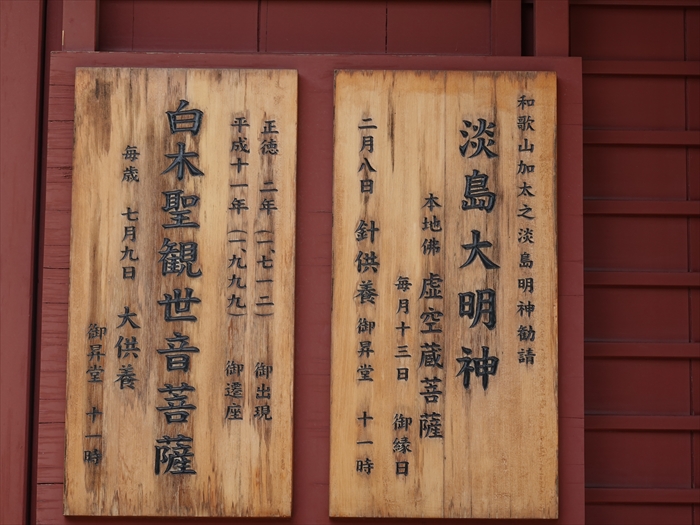 和歌山加太之淡島明神勧請
淡島大明神
本地佛 虚空蔵菩薩
毎月十三日 御縁日
二月八日 針供養 御昇堂 十一時
正徳 二年(一、七一二) 御出現
平成十一年(一、九九九) 御遷座
白木聖観世音菩薩
毎歳 七月九日 大供養
御昇堂 十一時